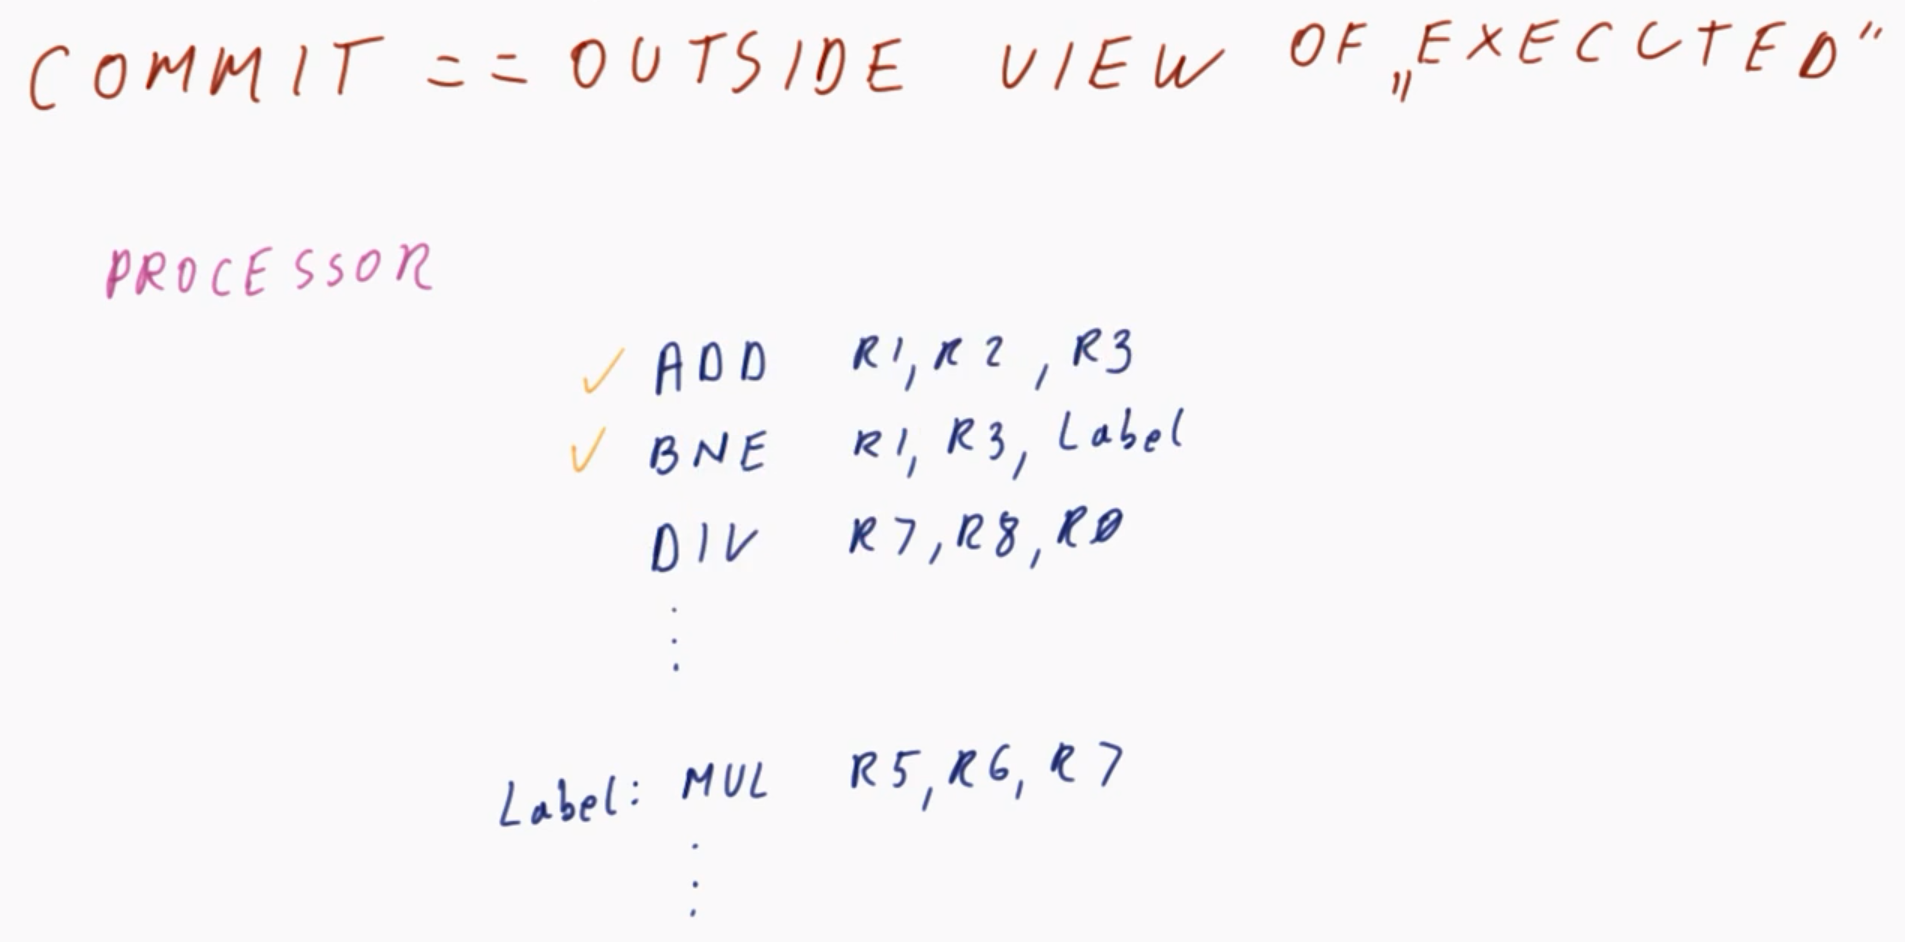 COMMIT == OUTSIDE VIEW OF „EXECUTED”
PROCESSOR
✓ ADD R1, R2, R3
✓ BNE R1, R3, Label
DIV R7, R8, R0
⋮
Label: MUL R5, R6, R7
⋮